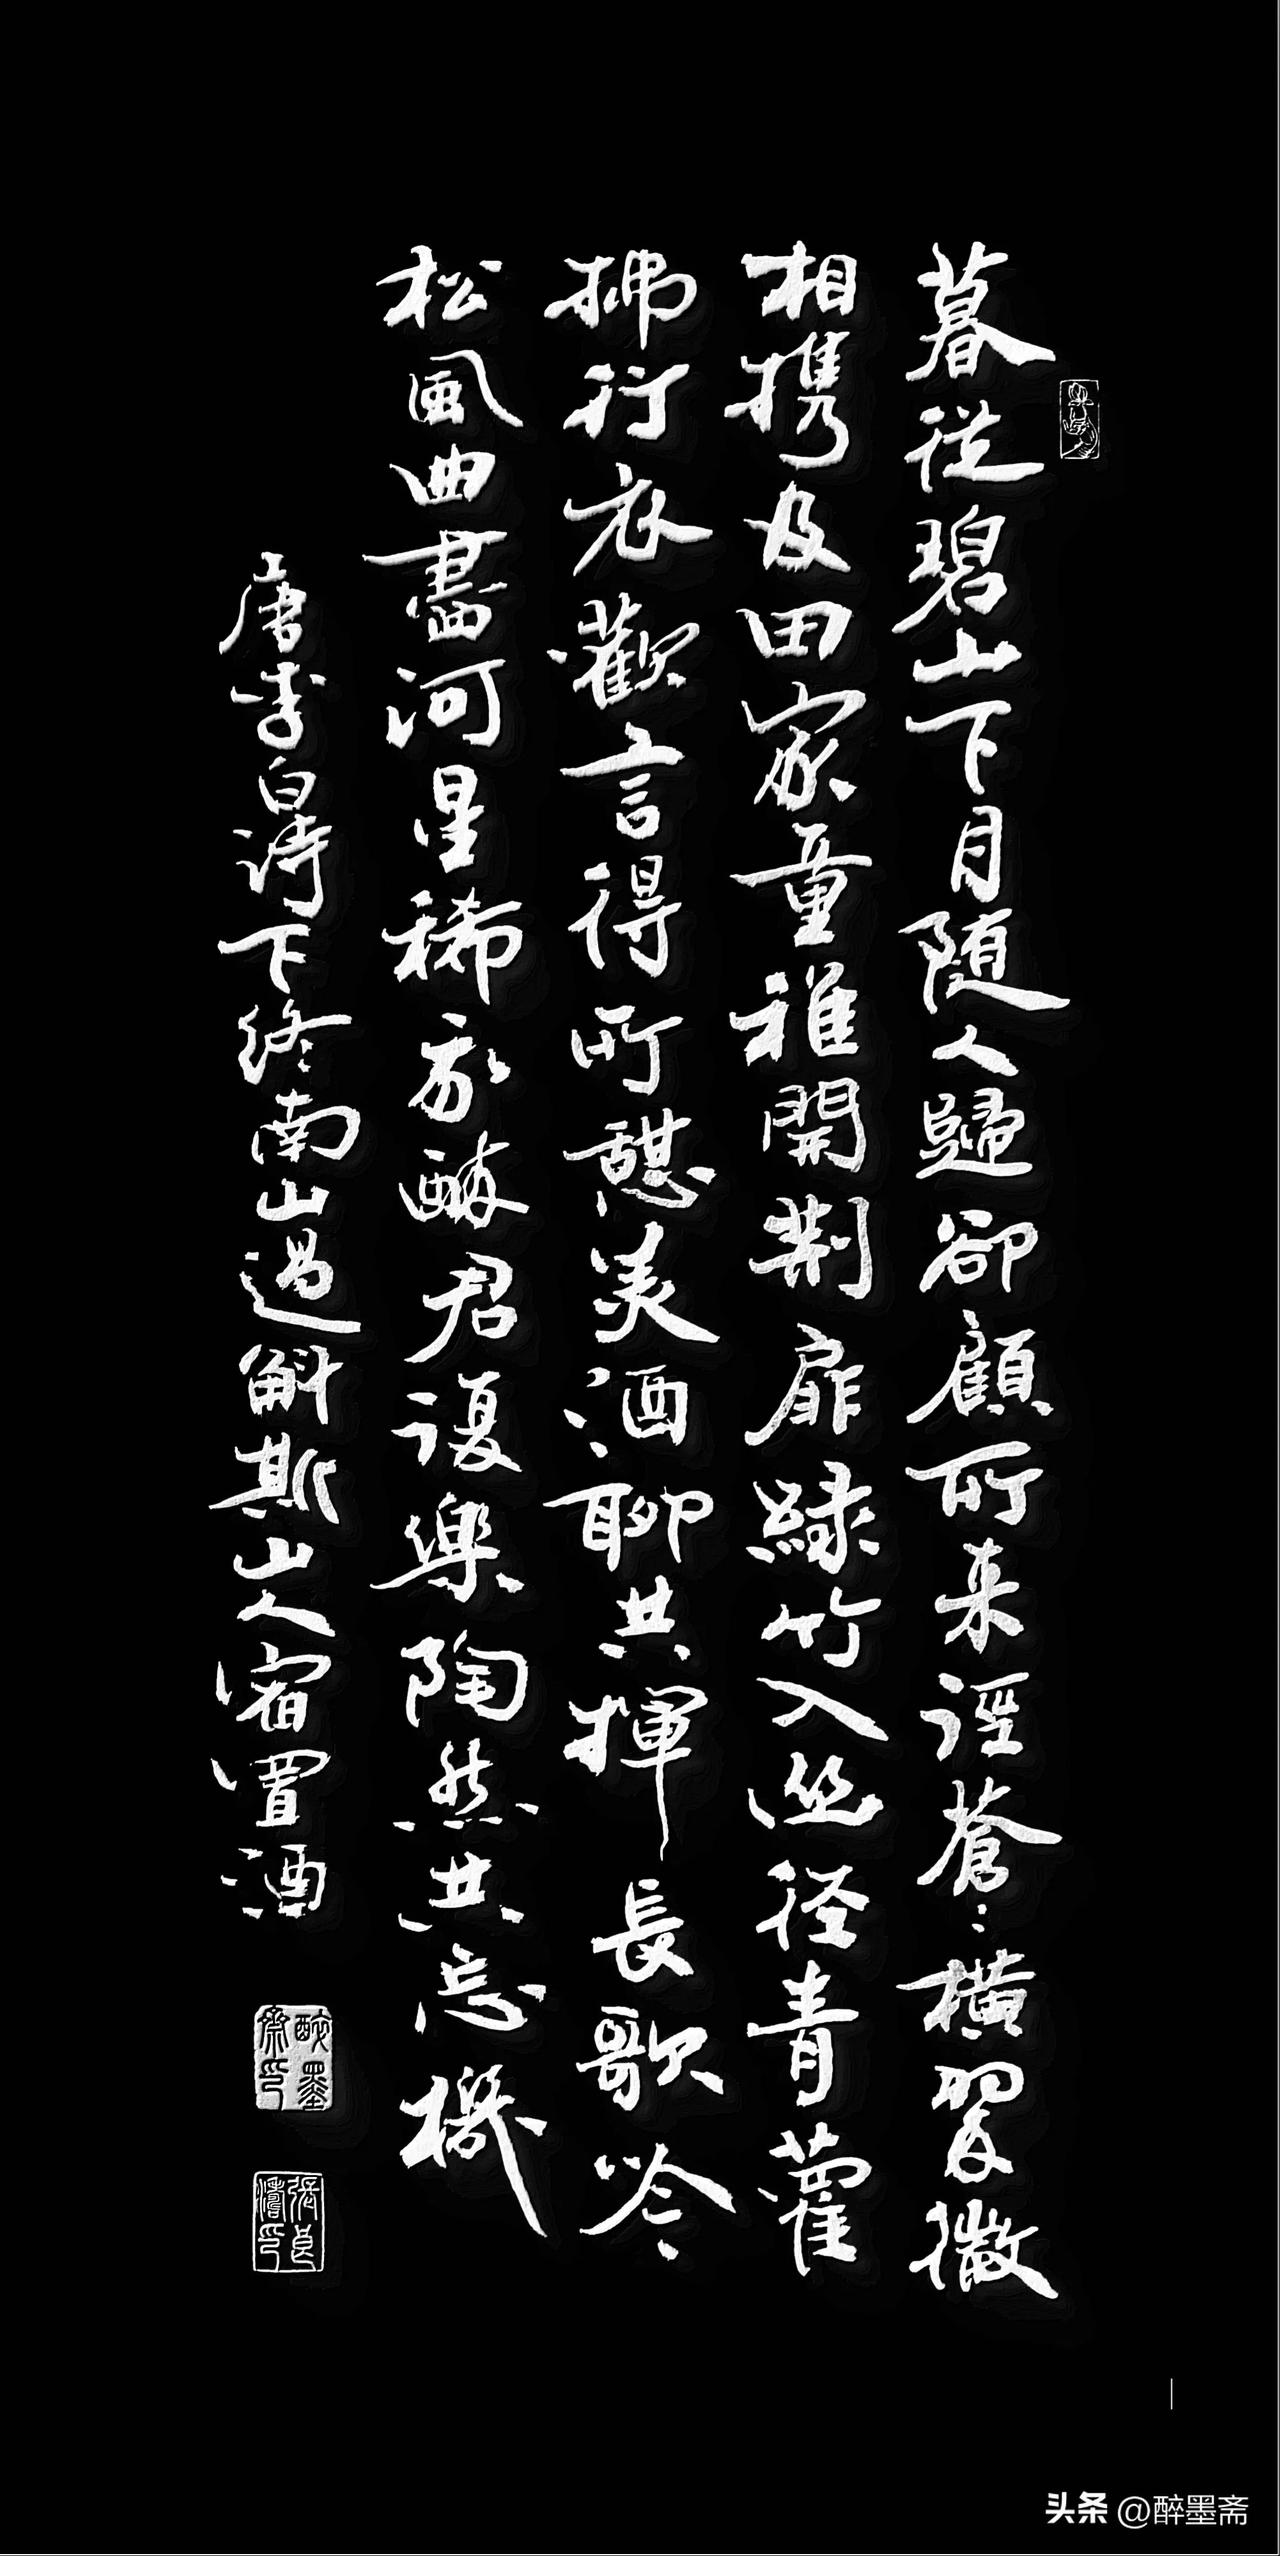 暮從碧山下月随人歸卻顧所来徑蒼〻橫翠微
相携及田家童稚開荆扉緑竹入幽径青蘿
拂行衣歡言得所憩美酒聊共揮長歌吟
松風曲盡河星稀我醉君復樂陶然共忘機
唐李白詩下終南山過斛斯山人宿置酒
醉墨齋印
头条 @醉墨斋